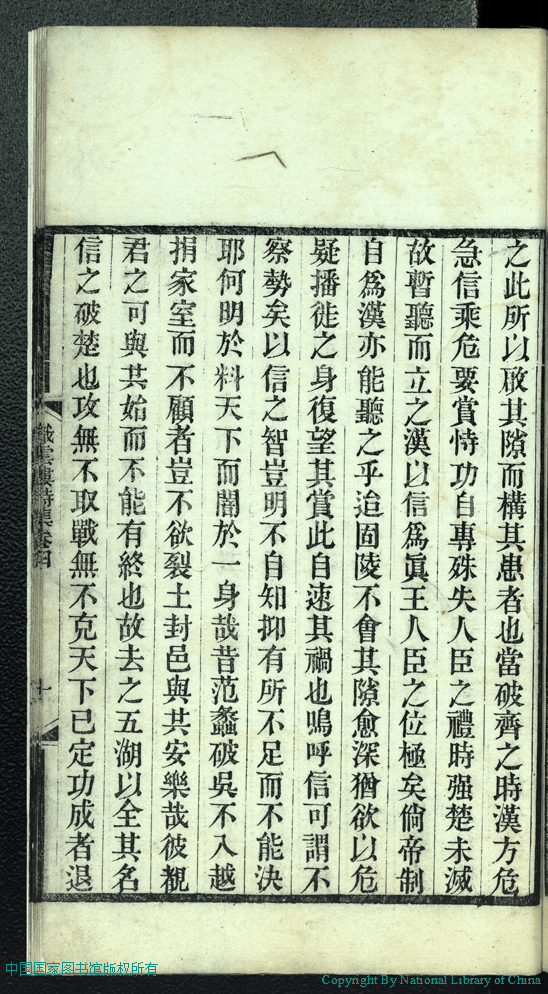 之此所以敢其隙而構其患者也當破齊之時漢方危
急信乘危要賞恃功自專殊失人臣之禮時强楚未滅
故暫聽而立之漢以信爲眞王人臣之位極矣倘帝制
自爲漢亦能聽之乎迨固陵不會其隙愈深猶欲以危
疑播徙之身復望其賞此自速其禍也嗚呼信可謂不
察勢矣以信之智豈明不自知抑有所不足而不能決
耶何明於料天下而闇於一身哉昔范蠡破吳不入越
捐家室而不顧者豈不欲裂土封邑與共安樂哉彼覩
君之可與共始而不能有終也故去之五湖以全其名
信之破楚也攻無不取戰無不克天下已定功成者退
織雲樓詩集卷四
十
中国国家图书馆版权所有
Copyright By National Library of China